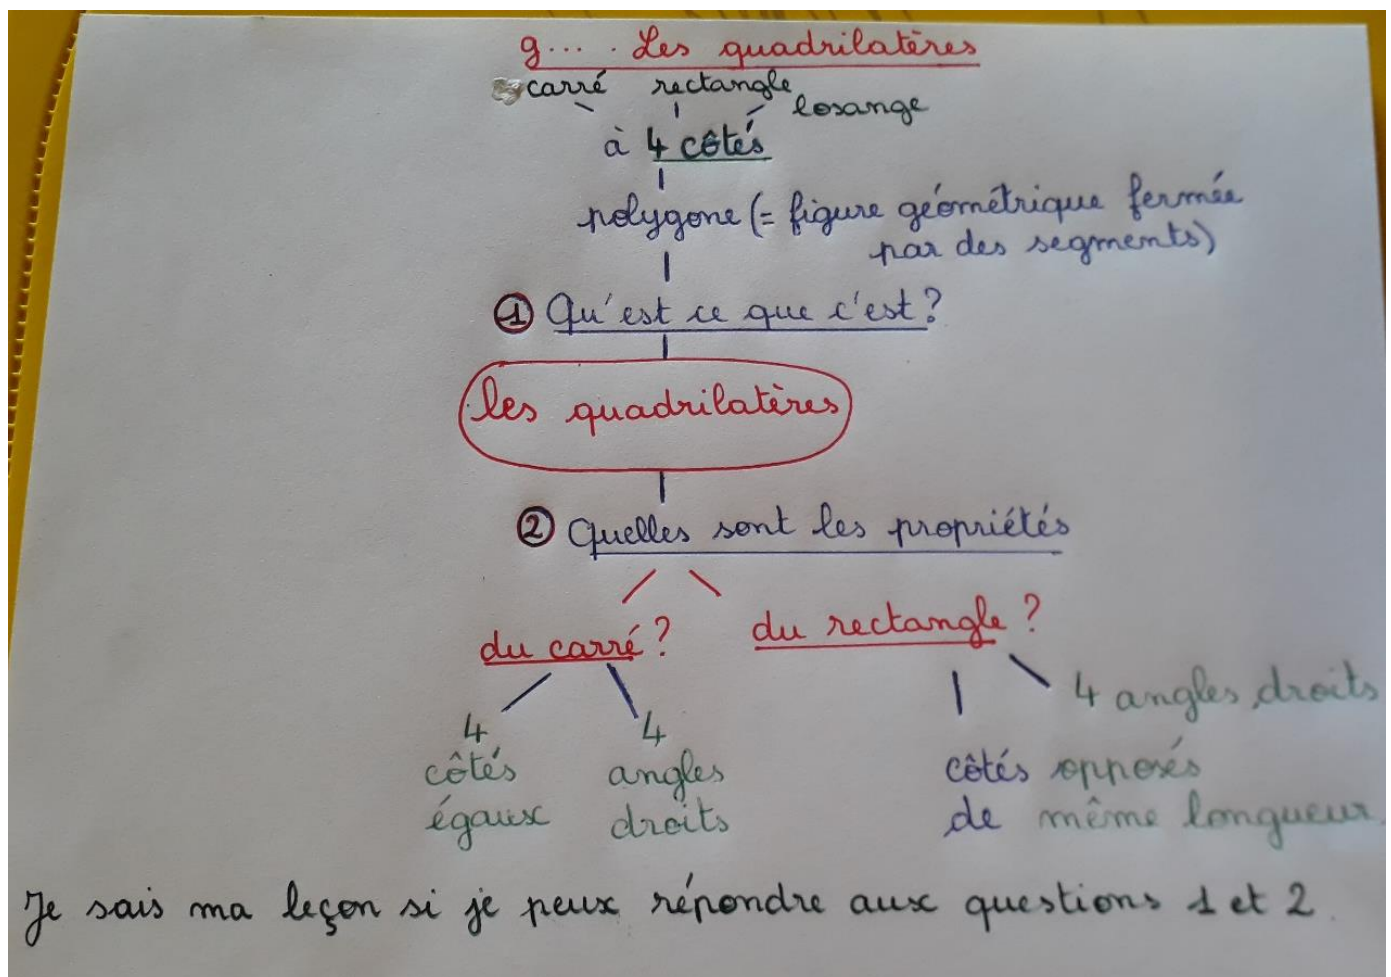 g.... . Les quadrilatères
carré rectangle
losange
à 4 côtés
polygone (= figure géométrique fermée
par des segments)
① Qu'est ce que c'est ?
les quadrilatères
② Quelles sont les propriétés
du carré ? du rectangle ?
4 angles droits
4 4
côtés angles côtés opposés
égaux droits de même longueur.
Je sais ma leçon si je peux répondre aux questions 1 et 2.